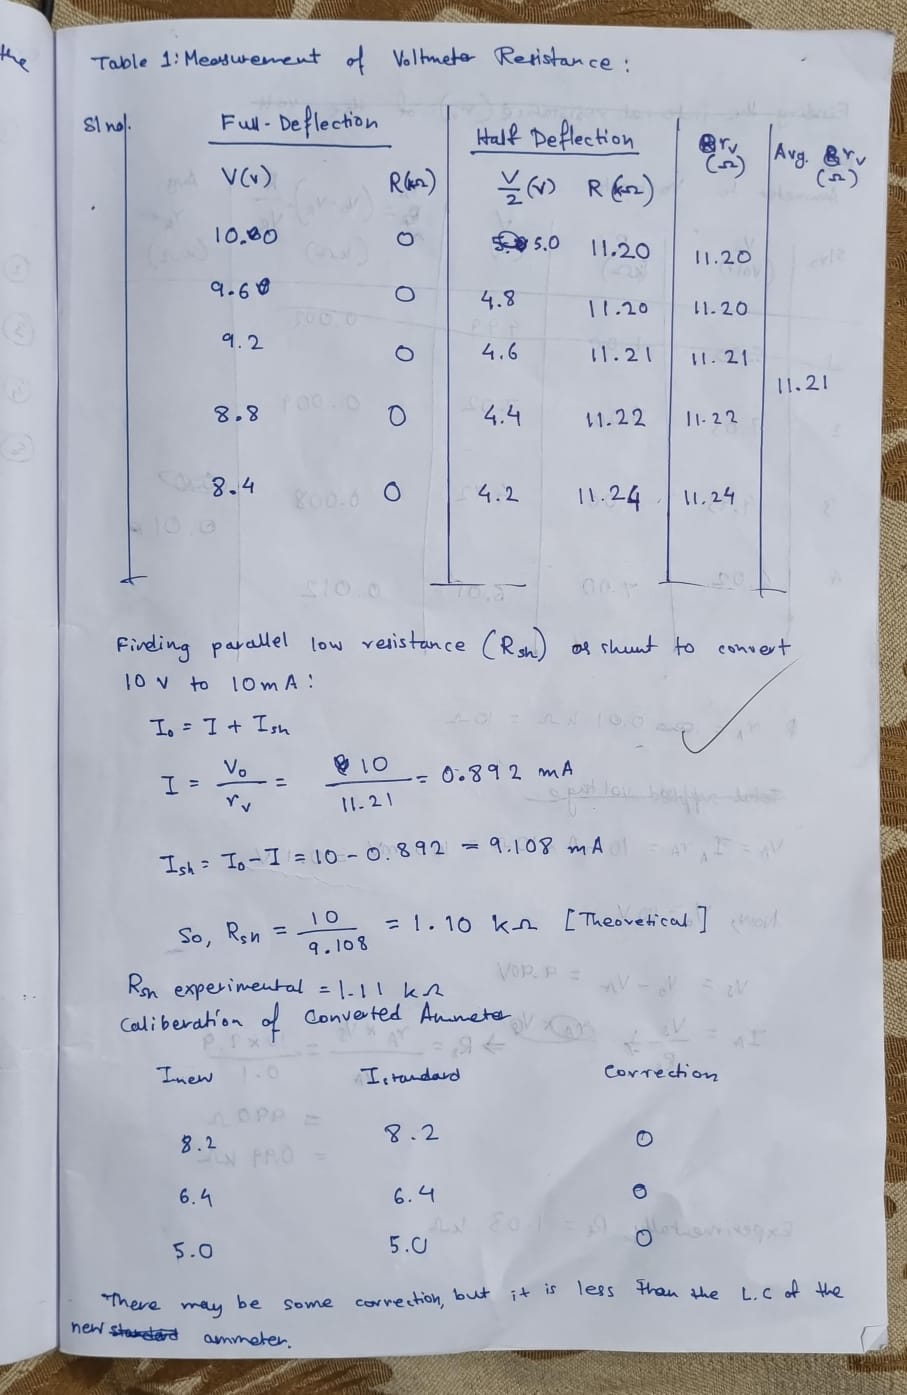 the
Table 1: Measurement of Voltmeter Resistance :
Sl no. Full-Deflection Half Deflection rv (Ω) Avg. rv (Ω)
V(v) R(kΩ) V/2 (V) R (kΩ)
10.00 0 5.0 11.20 11.20
9.60 0 4.8 11.20 11.20
9.2 0 4.6 11.21 11.21
11.21
8.8 0 4.4 11.22 11.22
8.4 0 4.2 11.24 11.24
Finding parallel low resistance (Rsh) or shunt to convert
10 V to 10 mA :
I₀ = I + Ish
I = V₀/rv = 10/11.21 = 0.892 mA
Ish = I₀ - I = 10 - 0.892 = 9.108 mA
So, Rsh = 10/9.108 = 1.10 kΩ [Theoretical]
Rsh experimental = 1.11 kΩ
Caliberation of Converted Ammeter
Inew Istandard Correction
8.2 8.2 0
6.4 6.4 0
5.0 5.0 0
There may be some correction, but it is less than the L.C of the
new standard ammeter.